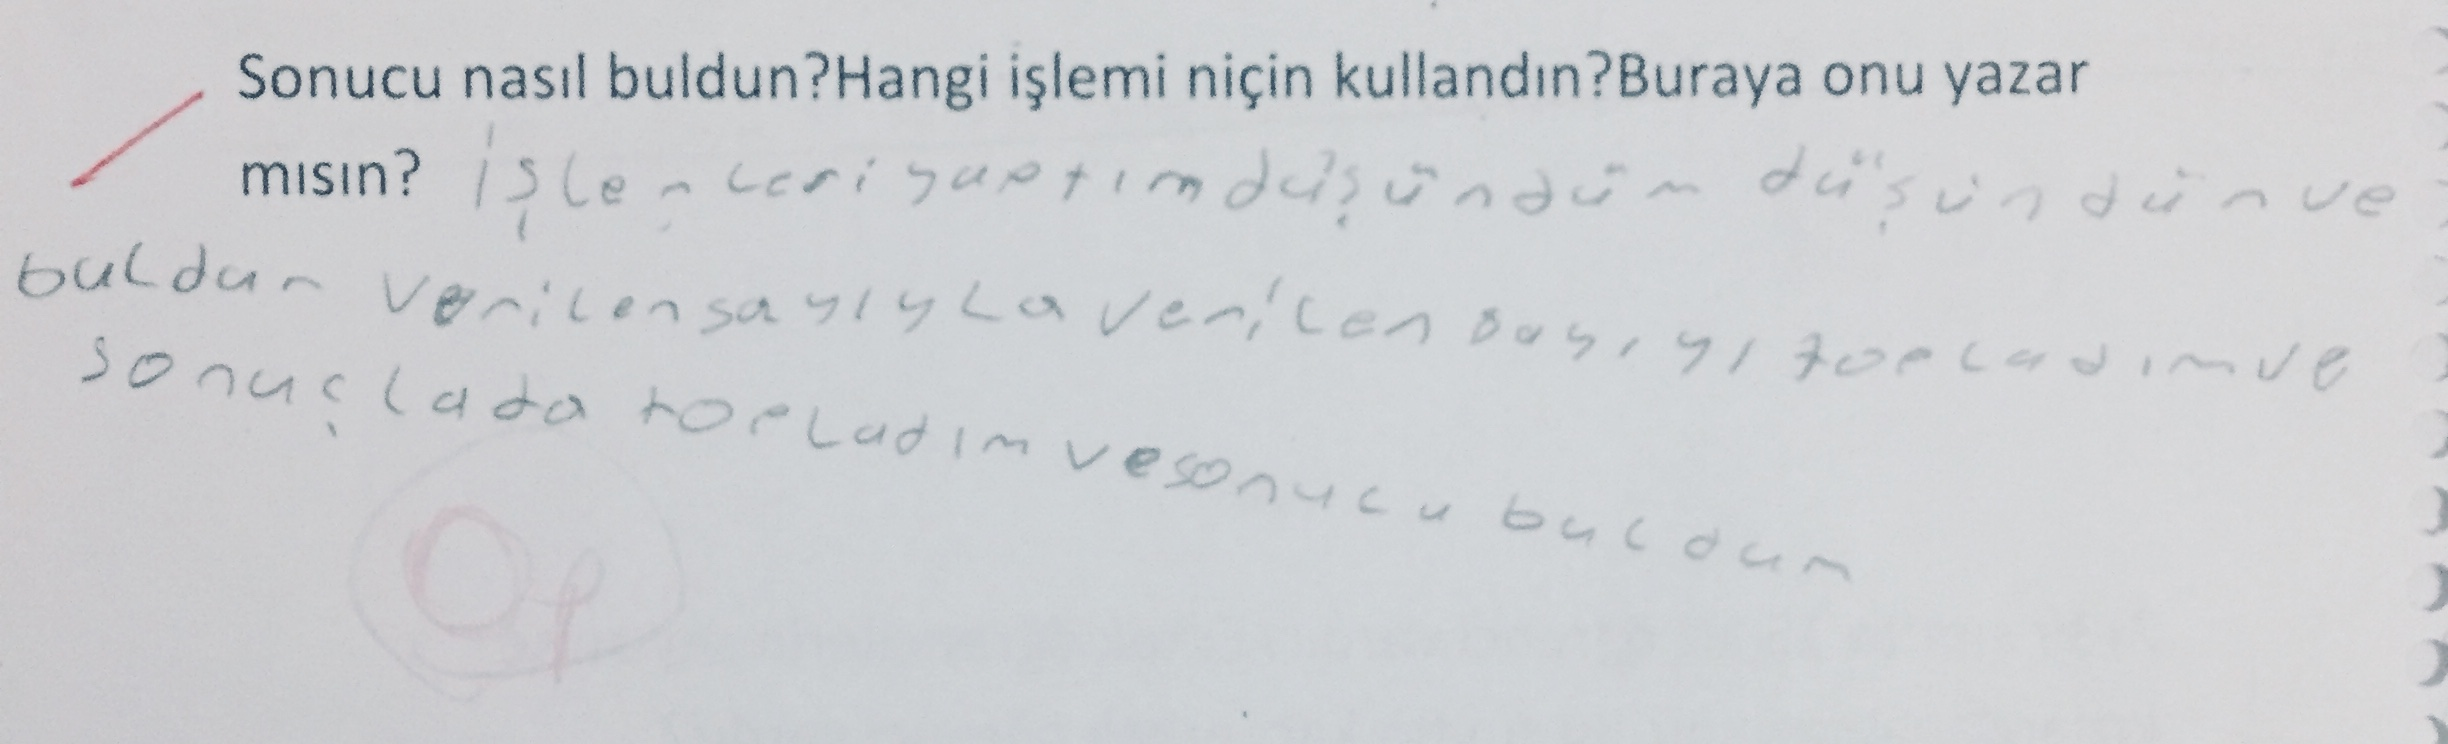 Sonucu nasıl buldun?Hangi işlemi niçin kullandın?Buraya onu yazar
mısın? İşlemleri yaptım düşündüm düşündüm ve
buldum verilen sayıyla verilen sayıyı topladım ve
sonuçlada topladım ve sonucu buldum
0p